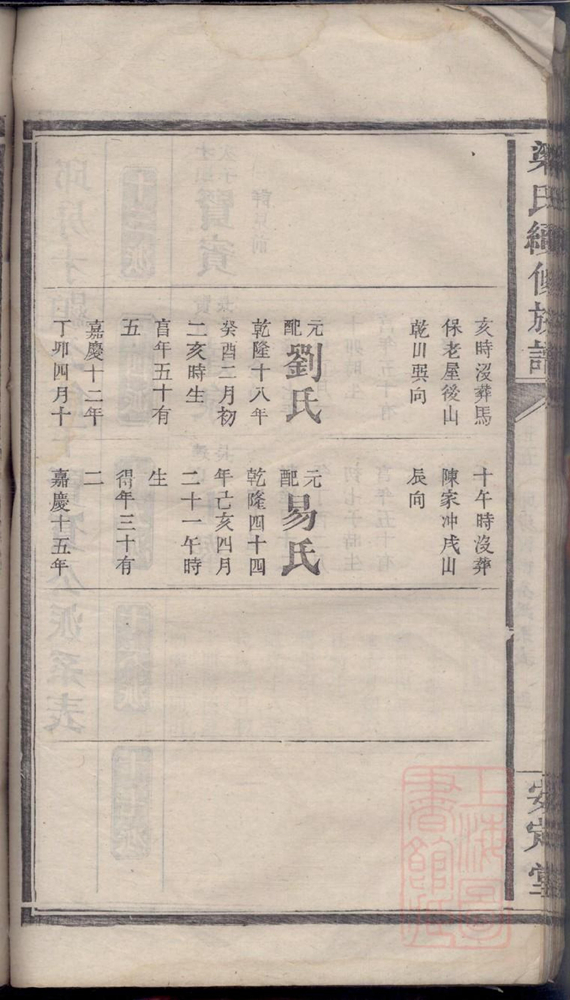 梁氏續修族譜
安定堂
亥時沒葬馬
保老屋後山
乾山巽向
元配劉氏
乾隆十八年
癸酉二月初
二亥時生
亯年五十有
五
嘉慶十二年
丁卯四月十
十午時沒葬
陳家冲戌山
辰向
元配易氏
乾隆四十四
年己亥四月
二十一午時
生
得年三十有
二
嘉慶十五年
上海圖
書館藏